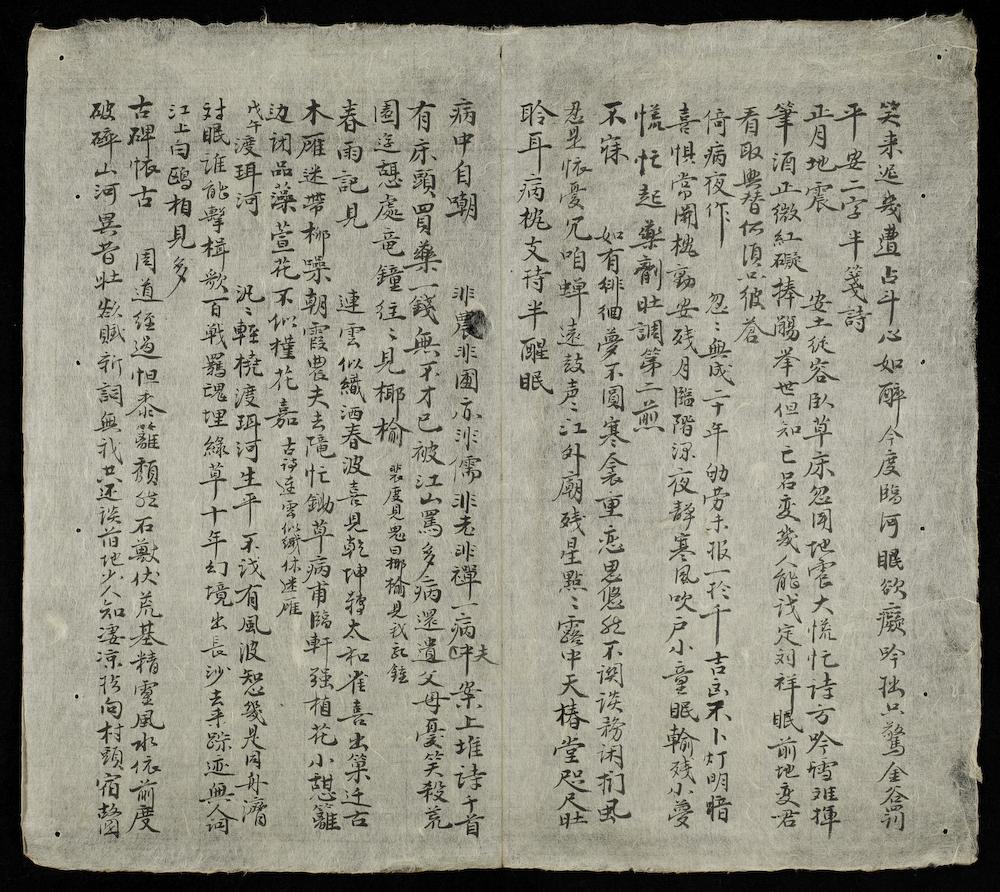 笑来泥幾遭占斗心如醉今度臨河眠欲癡吟拙只驚金谷罰
平安二字半箋詩
正月地震 安土従容臥草床忽聞地震大慌忙诗方吟雪难揮
筆酒正微紅礙捧觴举世但知亡呂变幾人能識定刘祥眠前地变君
看取興替何須只彼蒼
倚病夜作 忽〻與成二十年劬劳未报一於千吉凶不卜灯明暗
喜惧常関枕勸安残月臨階深夜静寒風吹户小童眠輸残小夢
慌忙起藥劑壯調第二煎
不寐 如有徘徊夢不圓寒衾重恋思悠然不関談務闲捫虱
忍是怀憂冗咱蟬遠鼓声〻江外廟残星點〻露中天椿堂咫尺壯
聆耳病枕支持半醒眠
病中自嘲 非農非圃亦非儒非老非禪一病夫案上堆詩千首
有床頭買藥一錢無不才已被江山罵多病還遺父母憂笑殺荒
園迂憇處竜鐘往〻見椰榆 裴度見鬼曰挪榆見我龍鍾
春雨記見 連雲似織洒春波喜見乾坤轉太和雀喜出巢迁古
木雁迷帶柳噪朝霞農夫去隴忙鋤草病甫臨軒强植花小憇籬
边闭品藻萱花不似槿花嘉 古诗連雲似織休迷雁
戊午渡珥河 汎〻輕橈渡珥河生平不识有風波恕幾是同舟濟
对眠谁能擊楫歌百戰羁魂埋綠草十年幻境出長沙去来踪迹無人问
江上白鷗相見多
古碑怀古 周道経過怛黍離頹然石獸伏荒基精靈風水依前度
破碎山河異昔壯欲賦新詞無我共还談旧地少人知凄凉於向村頭宿